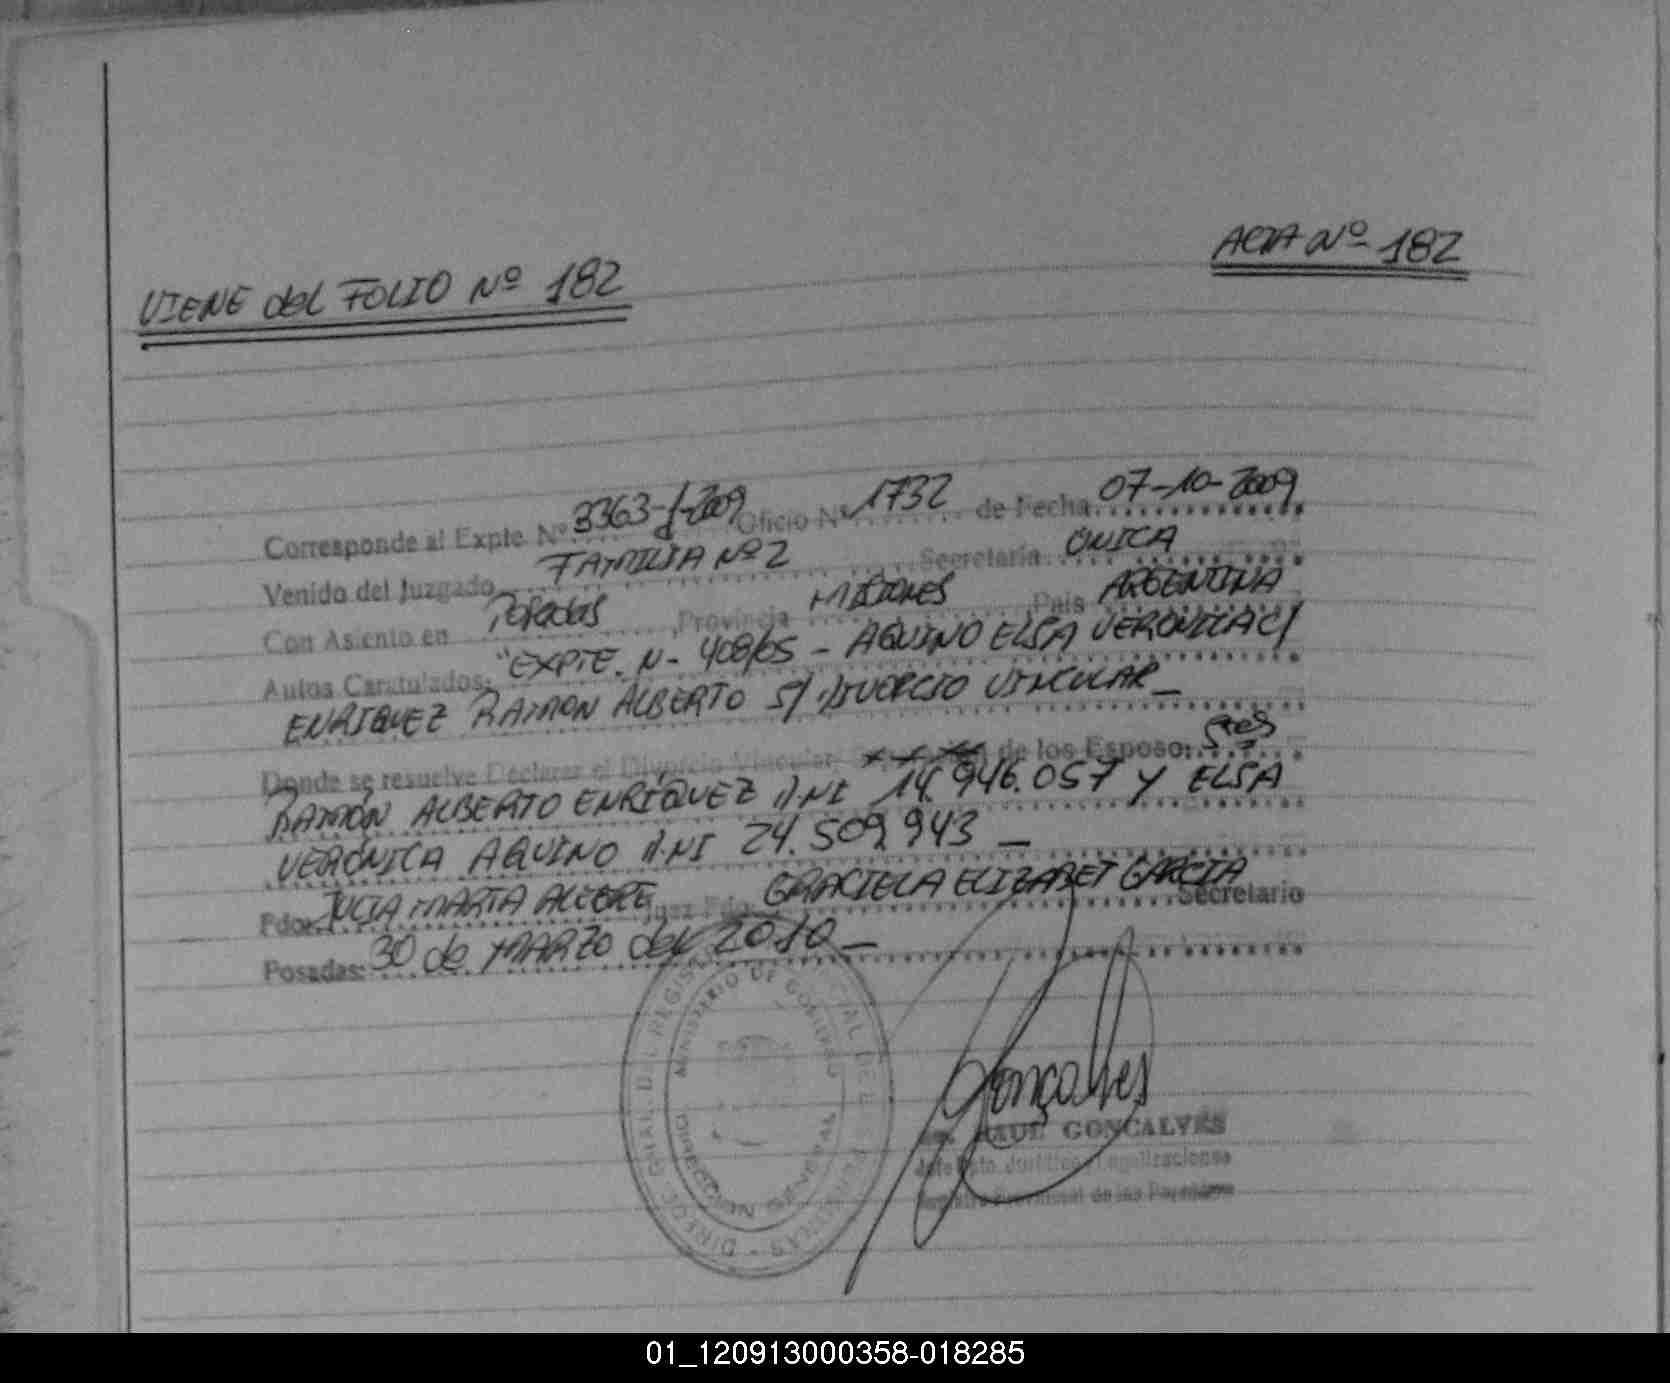 ACTA Nº 182
VIENE del FOLIO Nº 182
Corresponde al Expte Nº 3363-J-2009 Oficio Nº 1732 de Fecha 07-10-2009
Venido del Juzgado FAMILIA Nº 2 Secretaria UNICA
Con Asiento en Posadas Provincia MISIONES Pais ARGENTINA
Autos Caratulados: "EXPTE. N- 408/05 - AQUINO ELSA VERONICA C/
ENRIQUEZ RAMON ALBERTO S/ DIVORCIO VINCULAR_
Donde se resuelve Declarar el Divorcio Vincular, de los Esposo: Sres
RAMÓN ALBERTO ENRÍQUEZ D.NI 14.946.057 Y ELSA
VERÓNICA AQUINO D.NI 24.509.943 _
Fdo: JULIA MARTA ALEGRE Juez Fdo GRACIELA ELIZABET GARCIA Secretario
Posadas: 30 de MARZO del 2010_
MINISTERIO DE GOBIERNO
DIRECCION GENERAL
Gonçalves
RAUL GONCALVES
Jefe Dpto. Jurídico Legalizaciones
Registro Provincial de las Personas
01_120913000358-018285